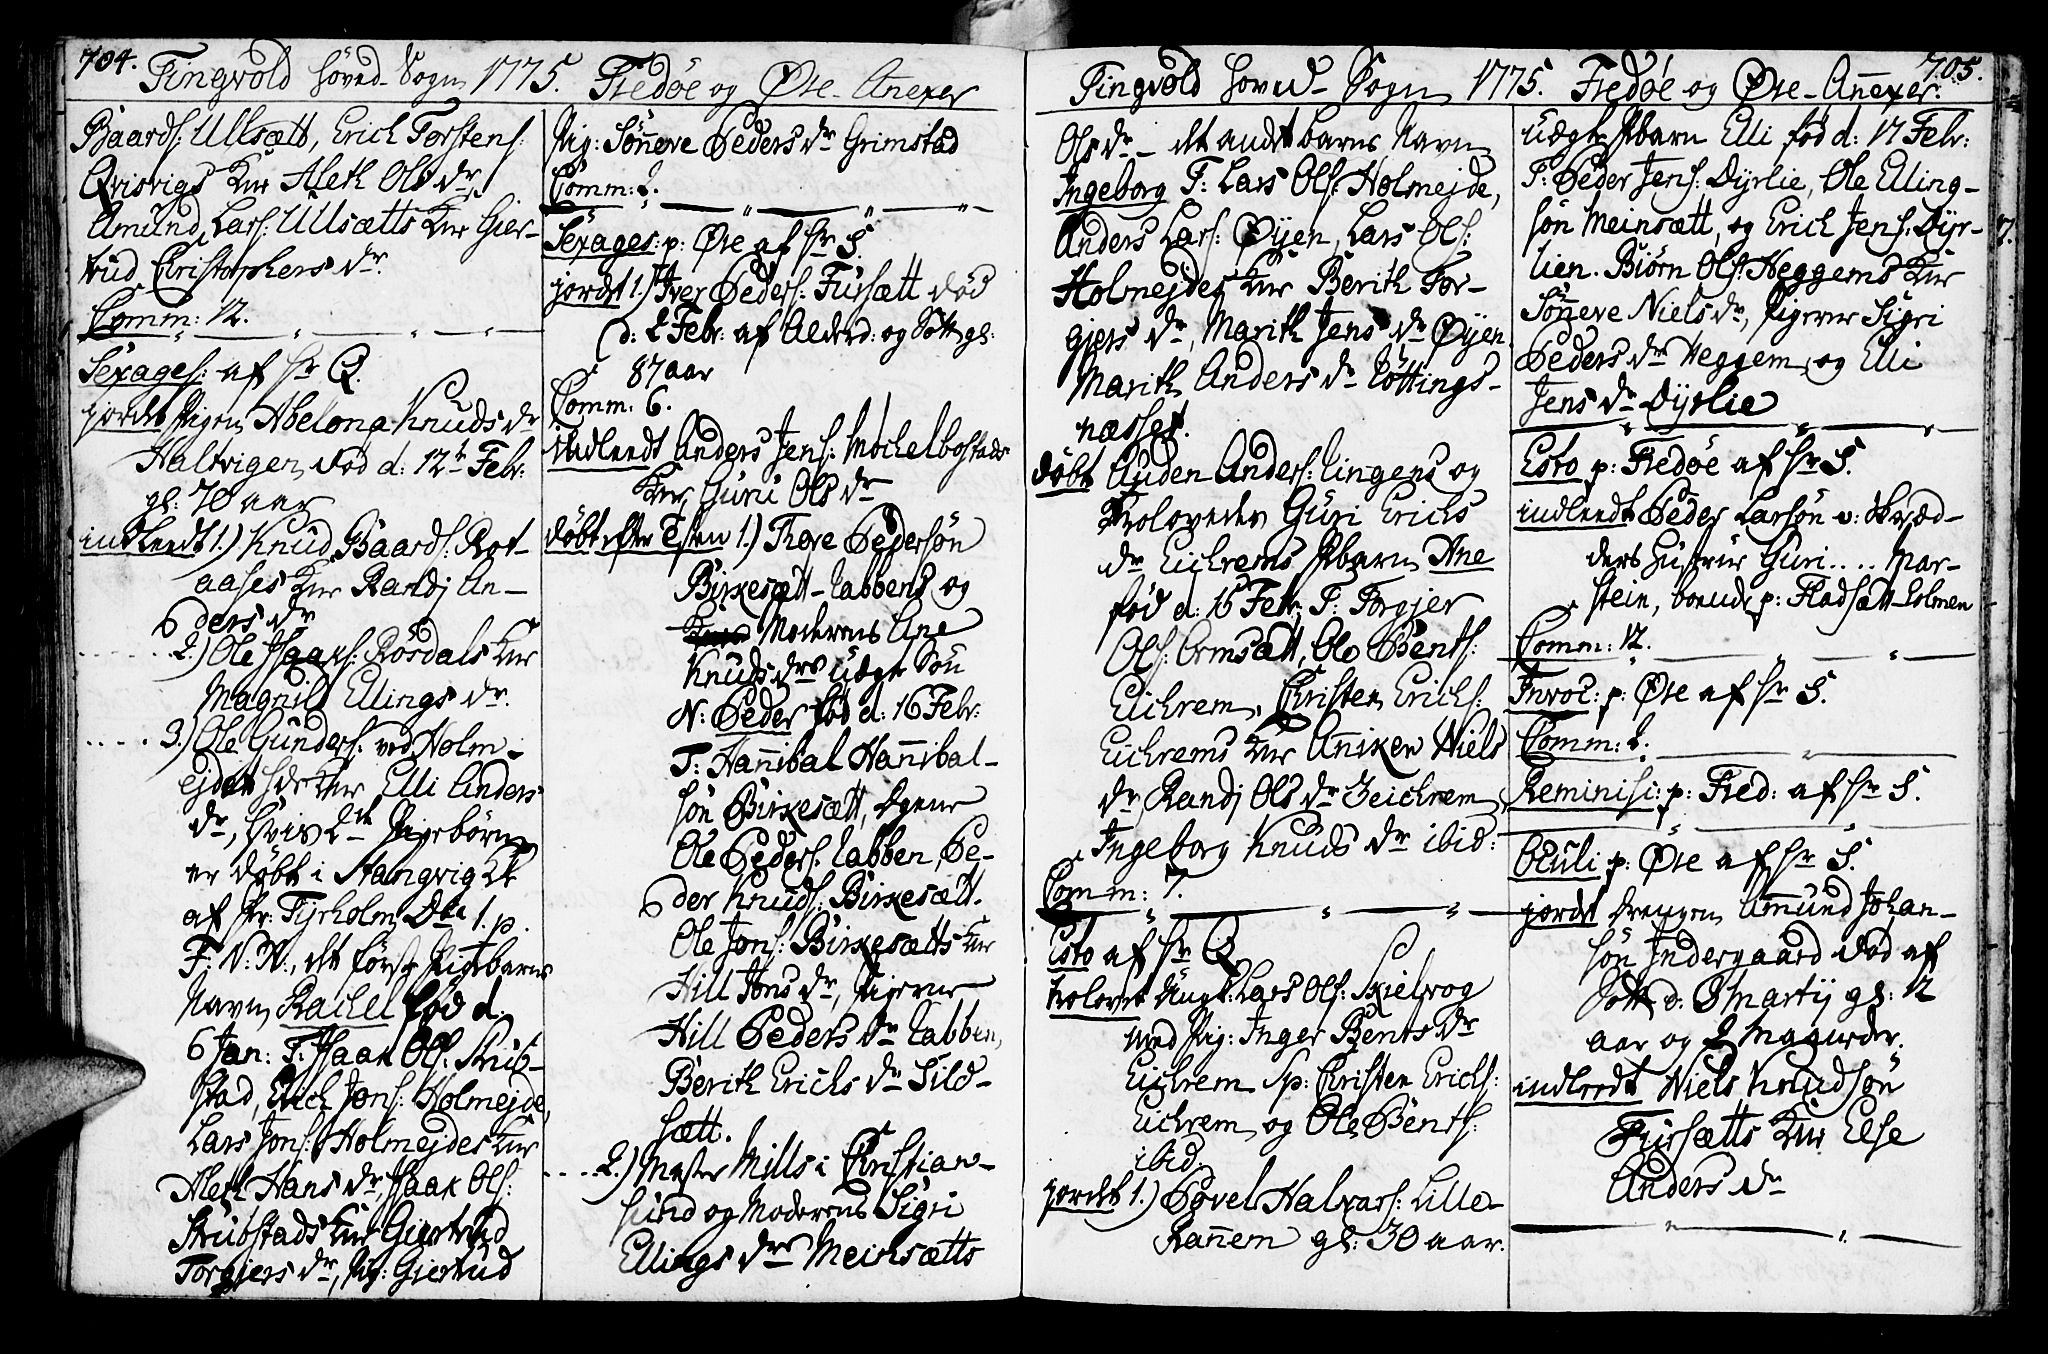 704. Tingvold Hoved-Sogn 1775. Fredøe og Øre-Anexer
Baards: Ullsætt, Erich Torstens:
Qvisvigs Kur Aleth Ols dr,
Amund Lars: Ullsætts Kur Gier-
trud Christophers dr.
Comm: 12.
Sexages: af Hr Q.
jordet Pigen Abelona Knuds dr
Haltvigen død d: 12t Febr:
gl: 70 aar
indleedt 1.) Knud Baards: Rot-
aases Kur Randj An-
ders dr
2.) Ole Isaaks: Rosdals Kur
Magnil Ellings dr.
3.) Ole Gunders: ved Holm-
ejdet hds Kur Elli Anders
dr, hvis 2de Pigebørn
er døbt i Stangvig K
af Hr: Tyrholm Dca 1. p.
F: N: N., det første Pigebarns
Navn Rachel fød d.
6 Jan: T: Isaak Ols: Strub-
stad, Erich Jons: Holmejde,
Lars Jons: Holmejdes Kur
Aleth Hans dr, Isaak Ols:
Strubstads Kur Giertrud
Torgiers dr, Pig: Giertrud
Pig: Sønneve Peders dr Grimstad
Comm: 2.
Sexages: p: Øre af Hr S.
jordet 1.) Iver Peders: Fursætt død
d: 2 Febr: af Alderd: og Sott gl:
87 aar
Comm: 6.
indleedt Anders Jens: Mochelbostads
Kur Guri Ols dr
døbt efter Esten 1.) Thore Pedersøn
Birkesætt-Labbens og
Moderens Ane
Knuds drs uægte Søn
N: Peder fød d: 16 Febr:
T: Hannibal Hannibal-
søn Birkesætt, Drgene
Ole Peders: Labben, Pe-
der Knuds: Birkesætt.
Ole Jons: Birkesætts Kur
Hill Jons dr, Pigerne
Hill Peders dr Labben,
Berith Erichs dr Sild-
sætt.
2.) Mester Mills i Christian-
sund og Moderens Sigri
Ellings drs Meinsætts
Tingvold Hoved-Sogn 1775. Fredøe og Øre-Annexer. 705.
Ols dr - det andet barns Navn
Ingeborg T: Lars Ols: Holmejde,
Anders Lars: Øyen, Lars Ols:
Holmejdes Kur Berith Tor-
gjers dr, Marith Jens dr Øyen
Marith Anders dr Löttings-
næsset.
døbt Auden Anders: Lingens og
Trolovedes Guri Erichs
dr Eichrems Pbarn Ane
fød d: 15 Febr: T: Torgjer
Ols: Ormsætt, Ole Bents:
Eichrem, Christen Erichs:
Eichrems Kur Anniken Niels
dr, Randj Ols dr Eeichrem,
Ingeborg Knuds dr ibid:
Comm: 7.
Esto af Hr Q.
trolovet Ungk: Lars Ols: Skielvog
med Pig: Inger Bents dr
Eichrem Sp: Christen Erichs:
Eichrem og Ole Bents:
ibid.
jordet 1.) Povel Halvars: Lille-
Rannem gl: 30 aar.
uægte Pbarn Elli fød d: 17 Febr:
T: Peder Jens: Dyrlie, Ole Elling-
søn Meinsætt, og Erich Jens: Dyr-
lien. Biørn Ols: Heggems Kur
Sønneve Niels dr, Pigerne Sigri
Peders dr Heggem og Elli
Jens dr Dyrlie
Esto p: Fredøe af Hr S.
indleedt Peder Larsøn v: Skræd-
ders Hustrue Guri .... Mar-
stein, boende p: Fladsætt-Holmen
Comm: 12.
Invoc: p: Øre af Hr S.
Comm: 2.
Reminisc: p: Fred: af Hr S.
Oculi p: Øre af Hr S.
jordet Drengen Amund Johan-
søn Indergaard død af
Sott d: 8 Martij gl: 12
aar og 2 Maaneder.
indleedt Niels Knudsøn
Fursætts Kur Else
Anders dr
7.